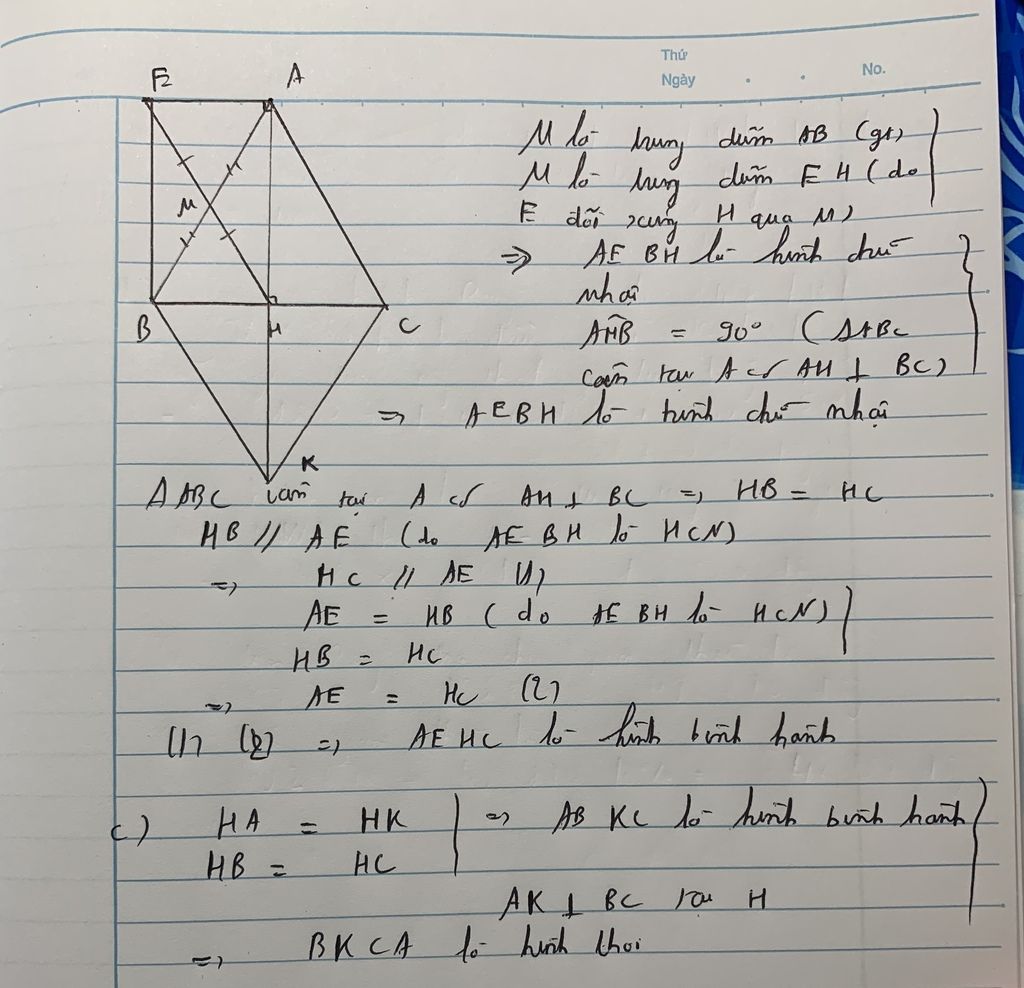 Thứ
Ngày . . No.
E A
M
B H C
K
M là trung điểm AB (gt)
M là trung điểm EH (do
E đối xứng H qua M)
=> AEBH là hình chữ
nhật
AHB = 90° (ΔABC
cân tại A có AH ⊥ BC)
=> AEBH là hình chữ nhật
ΔABC cân tại A có AH ⊥ BC => HB = HC
HB // AE (do AEBH là HCN)
=> HC // AE (1)
AE = HB (do AEBH là HCN)
HB = HC
=> AE = HC (2)
(1) (2) => AEHC là hình bình hành
c) HA = HK => ABKC là hình bình hành
HB = HC
AK ⊥ BC tại H
=> BKCA là hình thoi